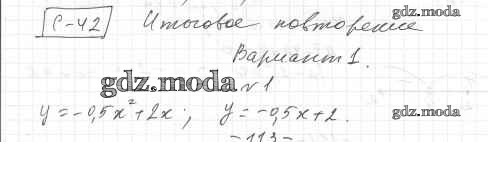 С-42 Итоговое повторение
gdz.moda
Вариант 1.
gdz.moda №1
y = -0,5x² + 2x ; y = -0,5x + 2.
gdz.moda
- 113 -